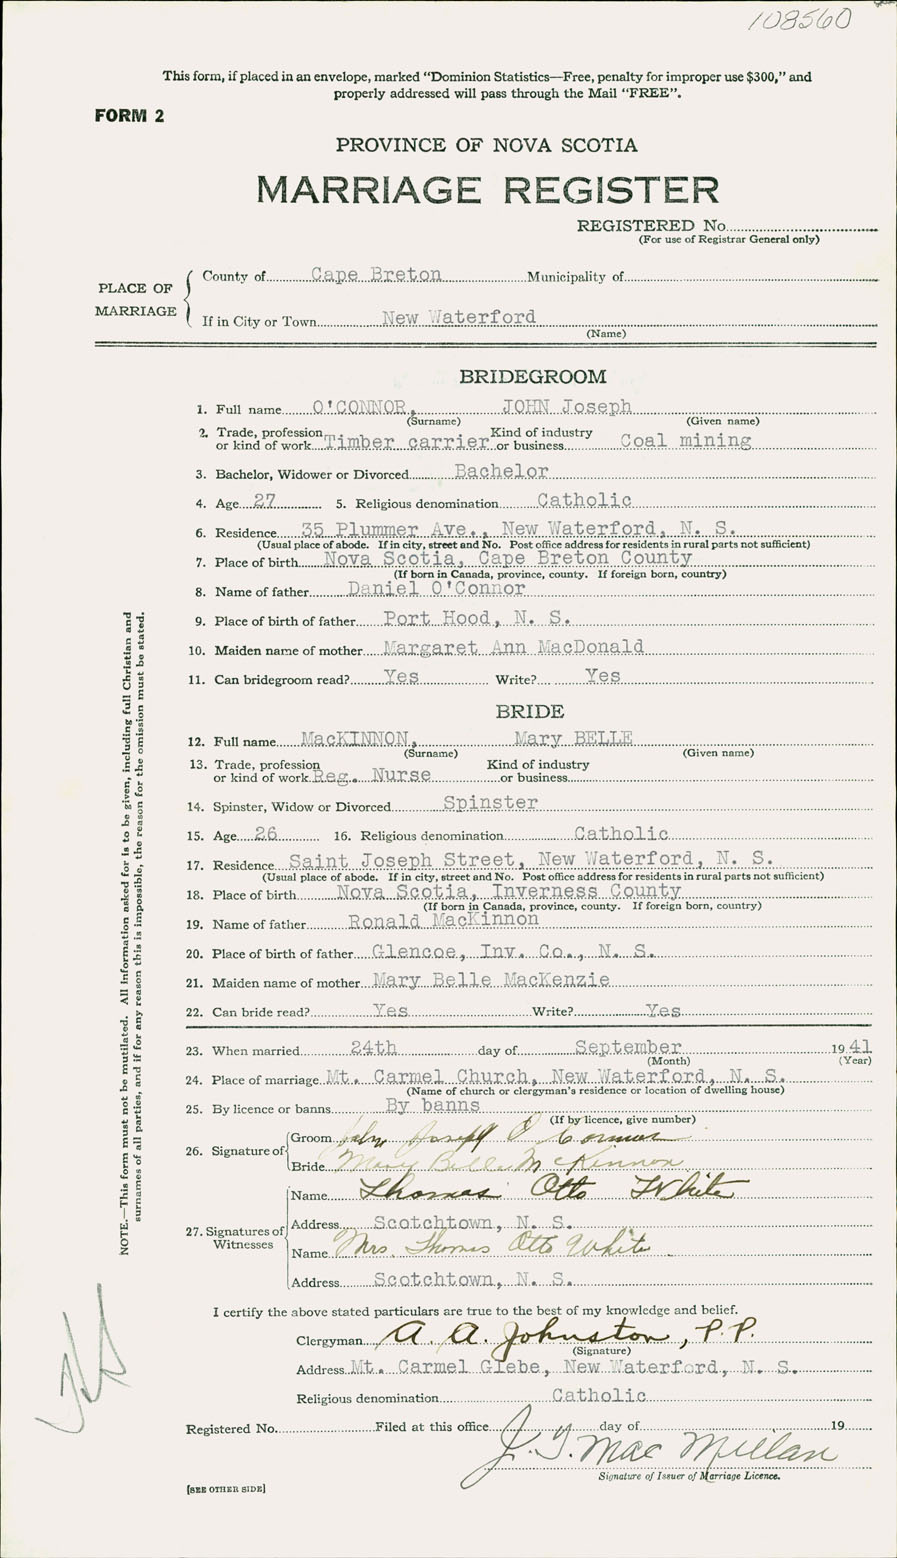 108560
This form, if placed in an envelope, marked “Dominion Statistics—Free, penalty for improper use $300,” and
properly addressed will pass through the Mail “FREE”.
FORM 2
PROVINCE OF NOVA SCOTIA
MARRIAGE REGISTER
REGISTERED No.
(For use of Registrar General only)
PLACE OF MARRIAGE
County of Cape Breton Municipality of
If in City or Town New Waterford
(Name)
BRIDEGROOM
1. Full name O'CONNOR, JOHN Joseph
(Surname) (Given name)
2. Trade, profession or kind of work Timber carrier Kind of industry or business Coal mining
3. Bachelor, Widower or Divorced Bachelor
4. Age 27 5. Religious denomination Catholic
6. Residence 35 Plummer Ave., New Waterford, N. S.
(Usual place of abode. If in city, street and No. Post office address for residents in rural parts not sufficient)
7. Place of birth Nova Scotia, Cape Breton County
(If born in Canada, province, county. If foreign born, country)
8. Name of father Daniel O'Connor
9. Place of birth of father Port Hood, N. S.
10. Maiden name of mother Margaret Ann MacDonald
11. Can bridegroom read? Yes Write? Yes
BRIDE
12. Full name MacKINNON, Mary BELLE
(Surname) (Given name)
13. Trade, profession or kind of work Reg. Nurse Kind of industry or business
14. Spinster, Widow or Divorced Spinster
15. Age 26 16. Religious denomination Catholic
17. Residence Saint Joseph Street, New Waterford, N. S.
(Usual place of abode. If in city, street and No. Post office address for residents in rural parts not sufficient)
18. Place of birth Nova Scotia, Inverness County
(If born in Canada, province, county. If foreign born, country)
19. Name of father Ronald MacKinnon
20. Place of birth of father Glencoe, Inv. Co., N. S.
21. Maiden name of mother Mary Belle MacKenzie
22. Can bride read? Yes Write? Yes
23. When married 24th day of September 1941
(Month) (Year)
24. Place of marriage Mt. Carmel Church, New Waterford, N. S.
(Name of church or clergyman's residence or location of dwelling house)
25. By licence or banns By banns
(If by licence, give number)
26. Signature of
Groom John Joseph O'Connor
Bride Mary Belle McKinnon
27. Signatures of Witnesses
Name Thomas Otto White
Address Scotchtown, N. S.
Name Mrs. Thomas Otto White
Address Scotchtown, N. S.
I certify the above stated particulars are true to the best of my knowledge and belief.
Clergyman A. A. Johnston, P.P.
(Signature)
Address Mt. Carmel Glebe, New Waterford, N. S.
Religious denomination Catholic
Registered No. Filed at this office day of 19
J. G. MacMillan
Signature of Issuer of Marriage Licence.
[SEE OTHER SIDE]
NOTE.—This form must not be mutilated. All information asked for is to be given, including full Christian and
surnames of all parties, and if for any reason this is impossible, the reason for the omission must be stated.